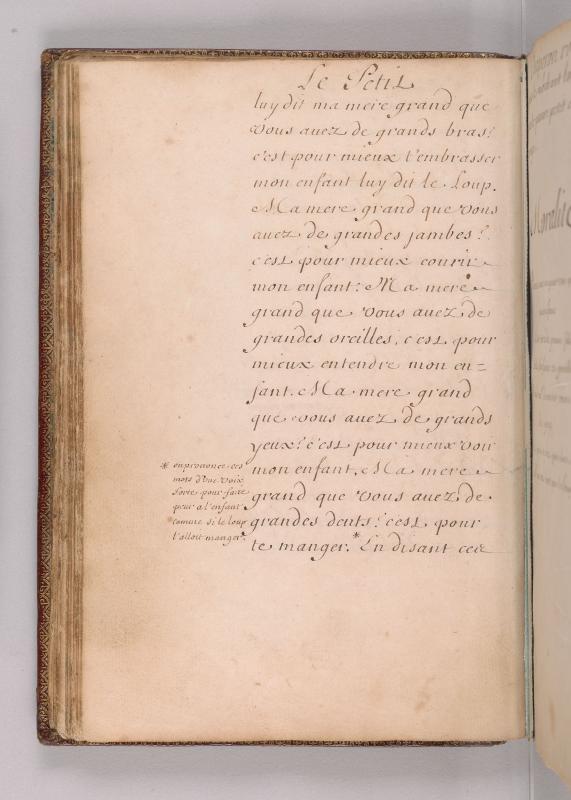 Le Petit
luy dit ma mere grand que
vous auez de grands bras?
c'est pour mieux t'embrasser
mon enfant luy dit le Loup.
Ma mere grand que vous
auez de grandes jambes?
c'est pour mieux courir
mon enfant: Ma mere
grand que vous auez de
grandes oreilles, c'est pour
mieux entendre mon en=
fant. Ma mere grand
que vous auez de grands
yeux? c'est pour mieux voir
mon enfant, Ma mere
grand que vous auez de
grandes dents? c'est pour
te manger.* En disant ces
* on prononce ces
mots d'une voix
forte pour faire
peur a l'enfant
comme si le loup
l'alloit manger.
Moralité